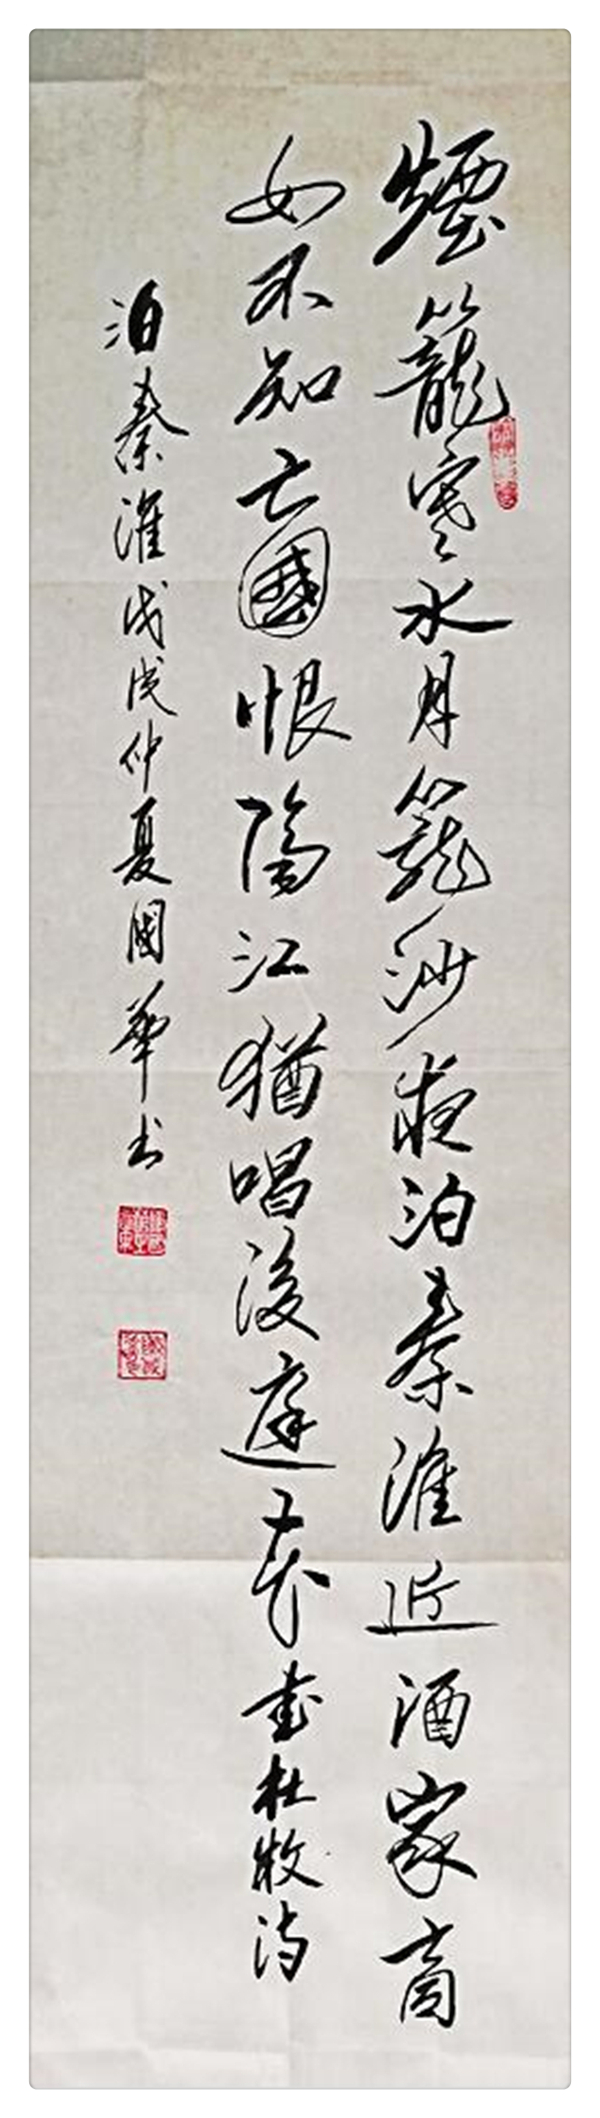 煙籠寒水月籠沙夜泊秦淮近酒家商
女不知亡國恨隔江猶唱後庭花書杜牧詩
泊秦淮戊戌仲夏國華书